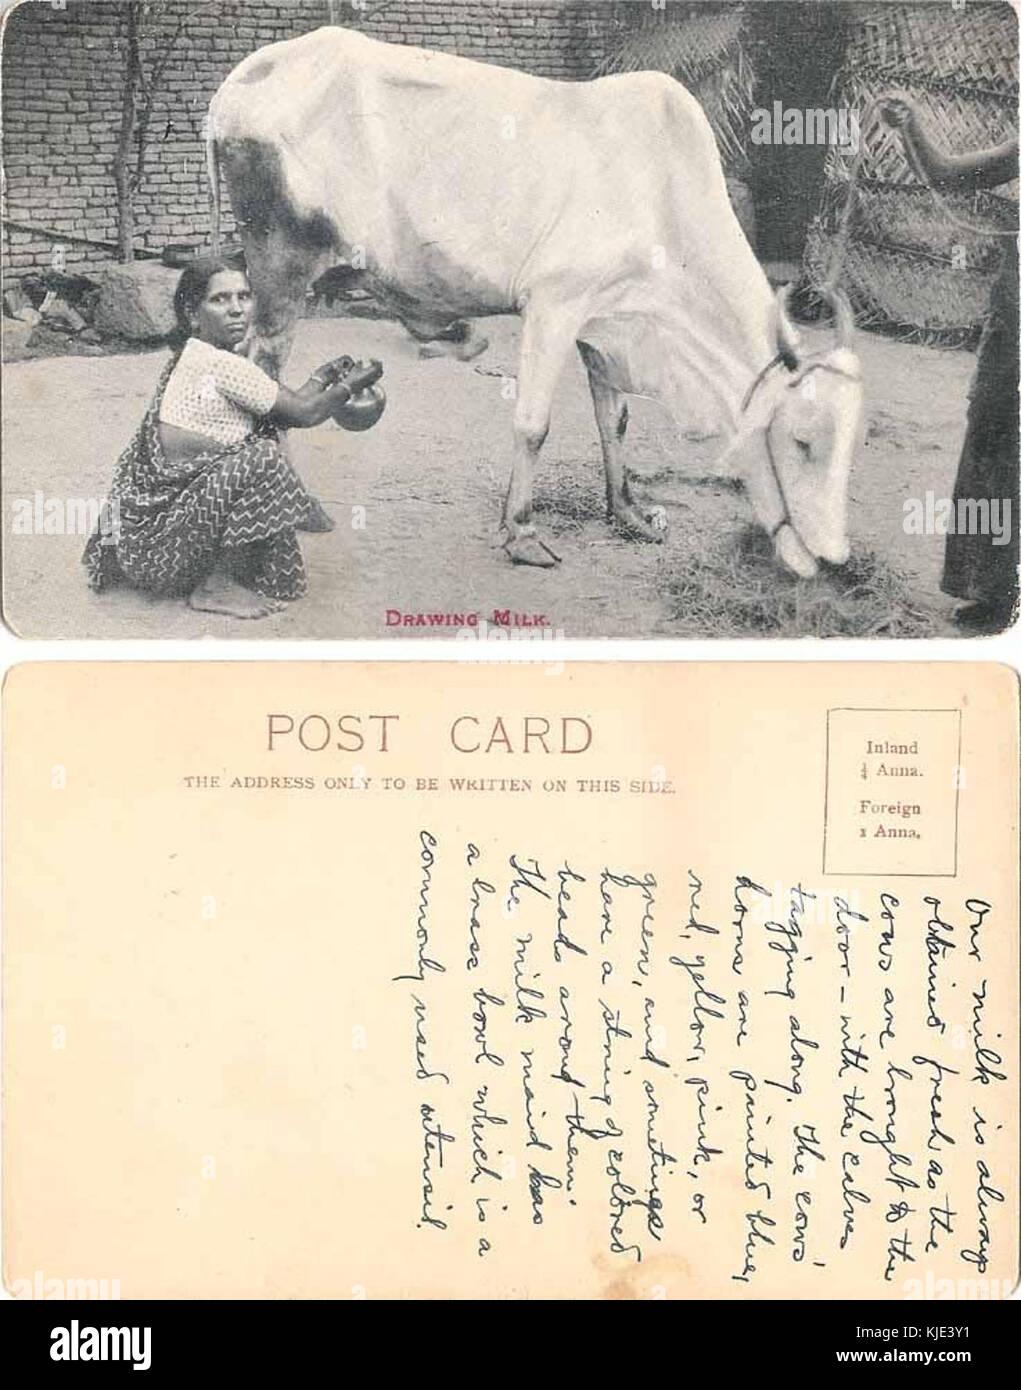 DRAWING MILK.
POST CARD
THE ADDRESS ONLY TO BE WRITTEN ON THIS SIDE.
Inland
¼ Anna.
Foreign
1 Anna.
Our milk is always
obtained fresh as the
cows are brought to the
door – with the calves
tagging along. The cows'
horns are painted blue,
red, yellow, pink, or
green, and sometimes
have a string of colored
beads around them.
The milk maid has
a brass bowl which is a
commonly used utensil.
alamy
Image ID: KJE3Y1
www.alamy.com